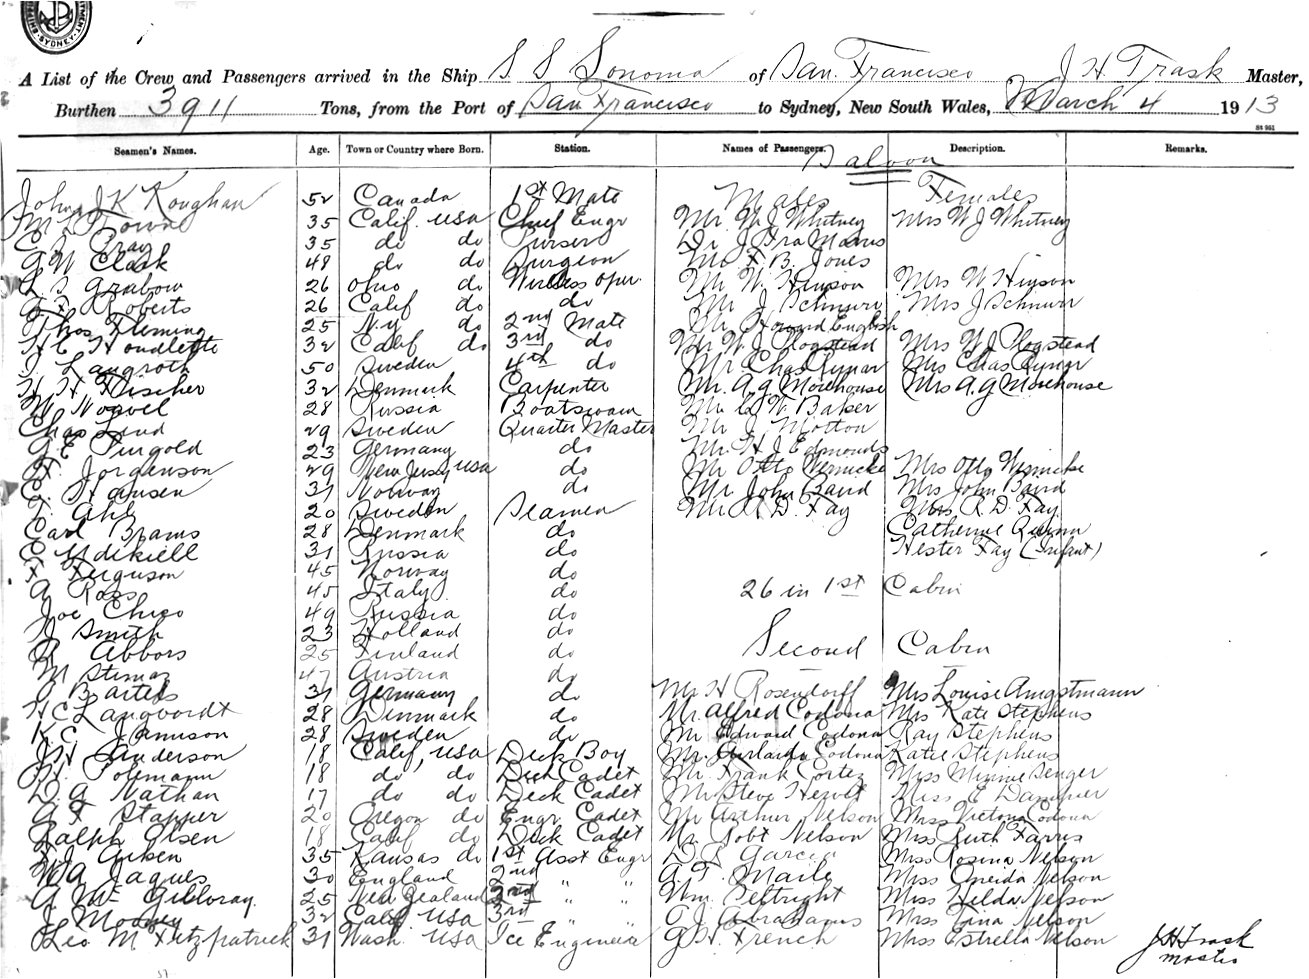 SYDNEY
A List of the Crew and Passengers arrived in the Ship S S Sonoma of San Francisco J H Trask Master,
Burthen 3911 Tons, from the Port of San Francisco to Sydney, New South Wales, March 4 1913
St 951
Seamen's Names. Age. Town or Country where Born. Station. Names of Passengers. Description. Remarks.
Saloon
John K Roughan 52 Canada 1st Mate Males Females
35 Calif. USA Chief Engr Mr W J Whitney Mrs W J Whitney
35 do do Purser Dr J Ira Harris
A N Clark 48 do do Surgeon Mr F. B. Jones
L S Grabow 26 Ohio do Wireless Oper. Mr W. Hinson Mrs W Hinson
Roberts 26 Calif do do Mr J Schnurr Mrs J Schnurr
Thos Fleming 25 N.Y do 2nd Mate Mr Howard English
H C Houdlette 32 Calif do 3rd do Mr W J Plogstead Mrs W J Plogstead
J Langroth 50 Sweden 4th do Mr Chas Rynar Mrs Chas Rynar
H H Fischer 32 Denmark Carpenter Mr. A G Morehouse Mrs A. G Morehouse
28 Russia Boatswain Mr C W. Baker
Chas Lind 29 Sweden Quarter Master Mr J Motton
23 Germany do Mr H J Edmonds
F. Jorgenson 29 New Jersey USA do Mr Otto Wernicke Mrs Otto Wernicke
C. Hansen 31 Norway do Mr John Baird Mrs John Baird
20 Sweden Seamen Mr R D Fay Mrs R. D. Fay
Carl Brams 28 Denmark do Catherine Quinn
31 Russia do Hester Fay (Infant)
F Ferguson 45 Norway do
A Ross 45 Italy do 26 in 1st Cabin
Joe Chico 49 Russia do
Smith 23 Holland do
Abbors 25 Finland do Second Cabin
M 47 Austria do
Bartels 31 Germany do Mr H Rosendorff Mrs Louise Angstmann
H C Langvordt 28 Denmark do Mr. Alfred Codona Mrs Kate Stephens
K. C. 28 Sweden do Mr Edward Codona Ray Stephens
J. H Anderson 18 Calif, USA Deck Boy Mr Codona Katie Stephens
18 do do Deck Cadet Mr. Frank Cortez Miss Minnie Senger
D. A Nathan 17 do do Deck Cadet Mr Steve Miss E
A F Stapper 20 Oregon do Engr Cadet Mr Arthur Nelson Miss Victoria Codona
Ralph Olsen 18 Calif do Deck Cadet Mr Robt Nelson Miss Ruth Farris
Aitken 35 Kansas do 1st Asst Engr D R Garcia Miss Rosina Nelson
W A Jaques 30 England 2nd " " A. T. Maile Miss Oneida Nelson
A Mc Gilloray 25 New Zealand " " Wm. Miss Hilda Nelson
J Mooney 32 Calif USA 3rd " " C J Abrahams Miss Tana Nelson
Leo M Fitzpatrick 31 Wash. USA Ice Engineer G H. French Miss Estrella Nelson
J H Trask
Master